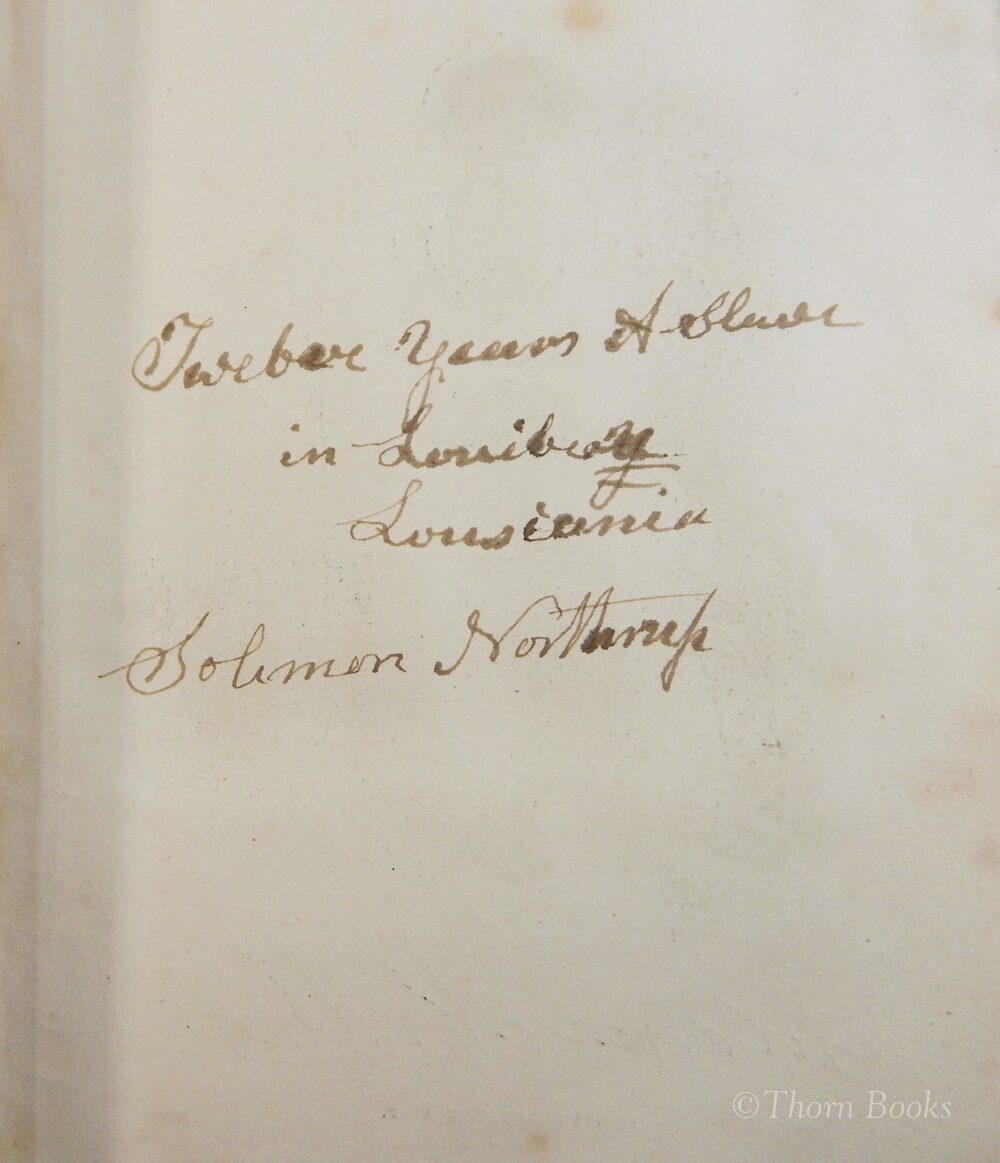 Twelve Years A Slave
in
Lousiania
Solomon Northrup
©Thorn Books